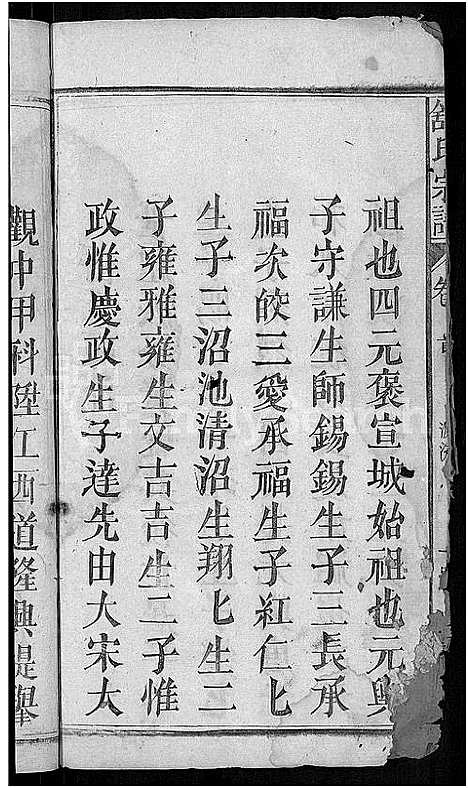 舒氏宗譜
卷首
祖也四元褒宣城始祖也元興
子守謙生師錫錫生子三長承
福次皎三愛承福生子紅仁匕
生子三沼池清沼生翔匕生二
子雍雅雍生文古吉生二子惟
政惟慶政生子達先由大宋大
觀中甲科陞江西道隆興提舉